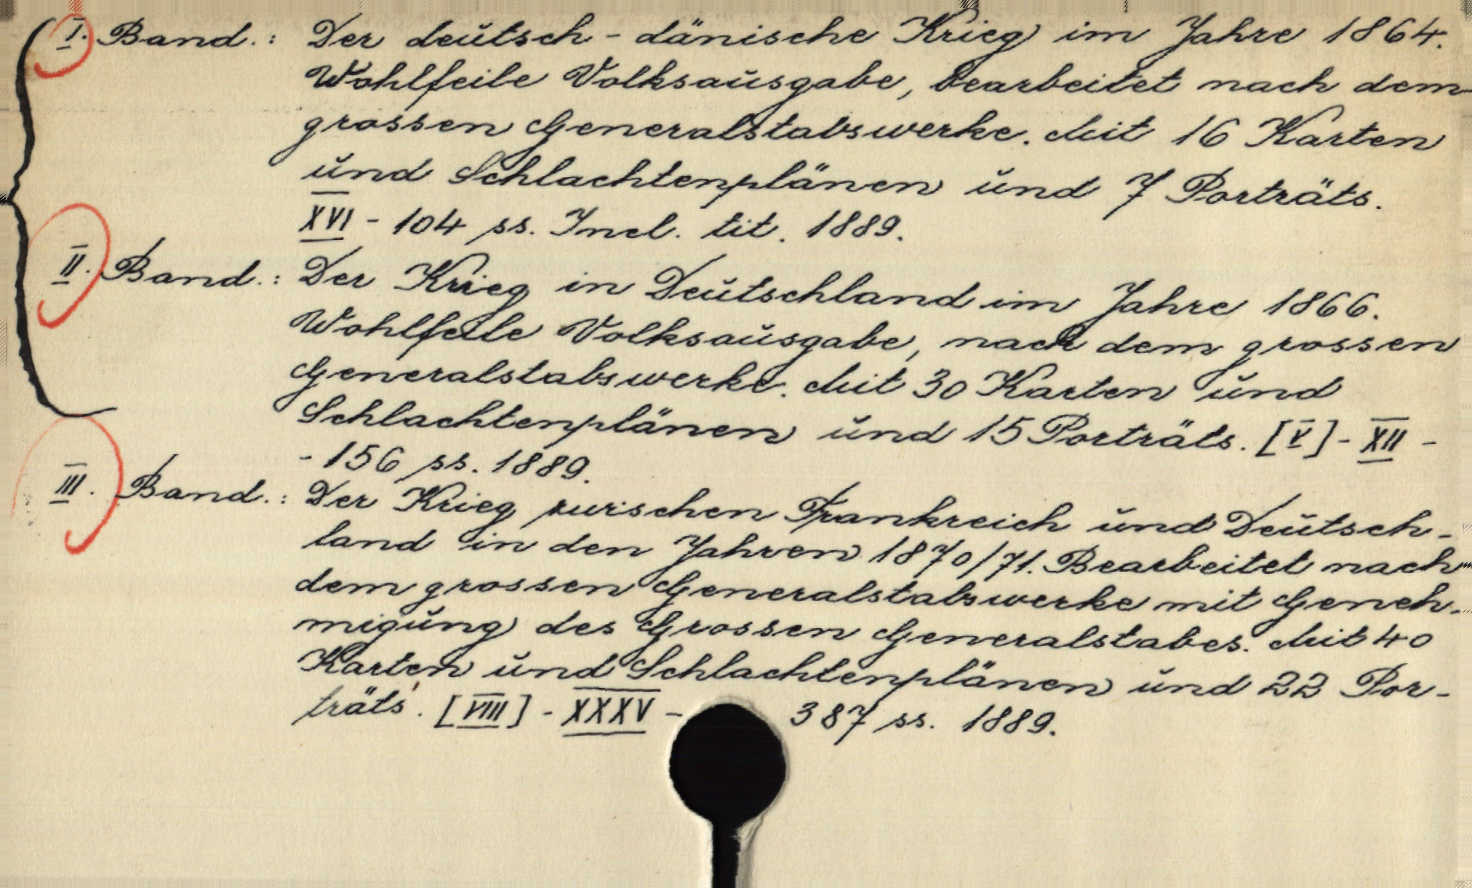 I. Band.: Der deutsch-dänische Krieg im Jahre 1864.
Wohlfeile Volksausgabe, bearbeitet nach dem
grossen Generalstabswerke. Mit 16 Karten
und Schlachtenplänen und 7 Porträts.
XVI - 104 ss. Incl. tit. 1889.
II. Band.: Der Krieg in Deutschland im Jahre 1866.
Wohlfeile Volksausgabe, nach dem grossen
Generalstabswerke. Mit 30 Karten und
Schlachtenplänen und 15 Porträts. [V] - XII -
- 156 ss. 1889.
III. Band.: Der Krieg zwischen Frankreich und Deutsch-
land in den Jahren 1870/71. Bearbeitet nach
dem grossen Generalstabswerke mit Geneh-
migung des Grossen Generalstabes. Mit 40
Karten und Schlachtenplänen und 22 Por-
träts. [VIII] - XXXV - 387 ss. 1889.